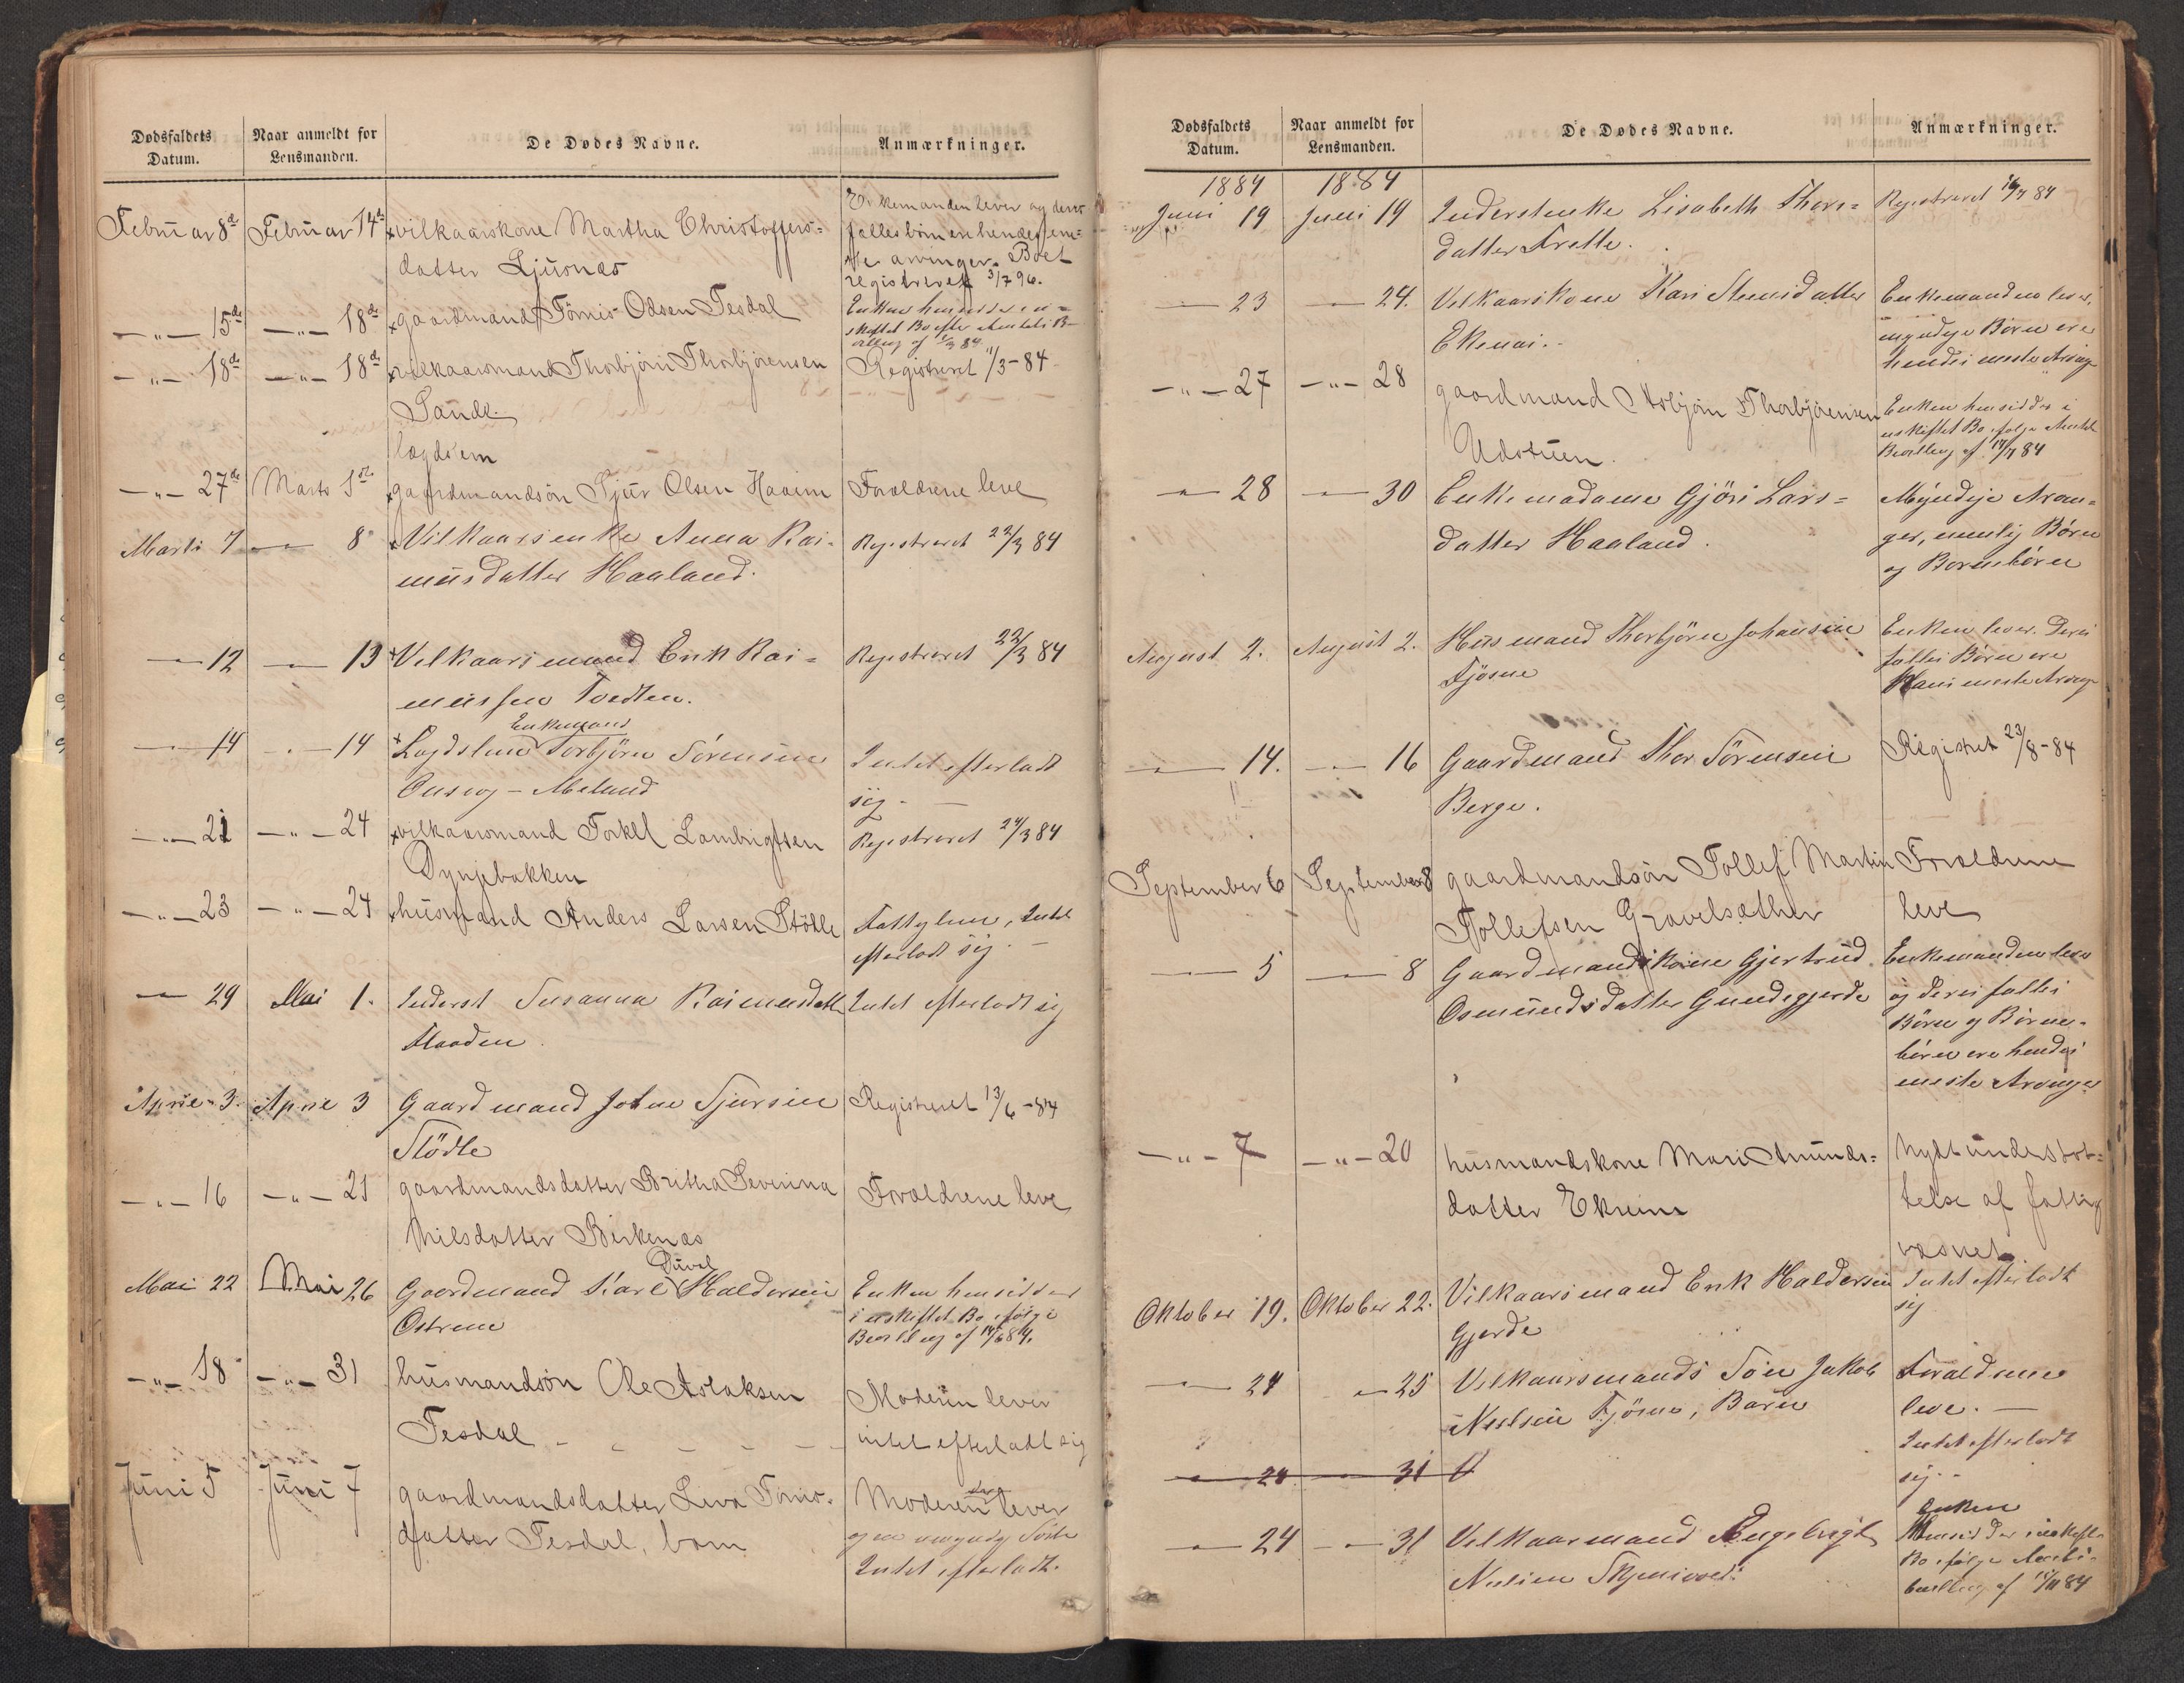 Dødsfaldets Datum.
Naar anmeldt for Lensmanden.
De Dødes Navne.
Anmærkninger.
Februar 8de Februar 14de vilkaarskone Martha Christoffers-
datter Ljusnæs
Enkemanden lever og deres
fælles børn ere hendes
arvinger. Boet
registreret 3/7 96.
— " — 15de — " — 18de gaardmand Tørris Odsen Tesdal
Enken hensidder i
uskiftet Bo efter Amtets Be-
villing af 84.
— " — 18de — " — 18de vilkaarsmand Thorbjörn Thorbjörnsen
Sande
Registreret 11/3-84
lægdslem
— " — 27de Marts 1ste gaardmandsøn Sjur Olsen Haaeim
Forældrene leve
Marts 7 — 8 Vilkaarsenke Anna Ras-
musdatter Haaland.
Registreret 22/3 84
— 12 — 13 Vilkaarsmand Erik Ras-
mussen Tvedten.
Registreret 22/3 84
Enkemand
— 14 — 14 Lægdslem Torbjörn Sörensen
Intet efterladt
sig. —
— 21 — " — 24 vilkaarsmand Torkel Lambrigtsen
Dynjebakken
Registreret 24/3 84
— " — 23 — " — 24 husmand Anders Larsen Stölle
Fattiglem, Intet
efterladt sig. —
— 29 Mai 1. Inderst Susanna Rasmusdatter
Intet efterladt sig
April 3. April 3 Gaardmand Johne Sjursen
Stödle
Registreret 13/6-84
— " — 16 — " — 21 gaardmandsdatter Britha Severina
Nilsdatter Birkenæs
Forældrene leve
Mai 22 Mai 26 Gaardmand Karl Haldorsen
Ostreim
Enken hensidder
i uskiftet Bo ifølge
Bevilling af 14/6 84.
— " — 18 — " — 31 husmandsøn Ole Aslaksen
Tesdal
Moderen lever
intet efterladt sig
Juni 5 Juni 7 gaardmandsdatter Tørris-
datter Tesdal, barn
Moderen lever
og en umyndig
Intet efterladt.
Dødsfaldets Datum.
Naar anmeldt for Lensmanden.
De Dødes Navne.
Anmærkninger.
1884 1884
Juni 19 Juni 19 Inderstenke Lisabeth Thors-
datter Frette.
Registreret 84
— 23 — 24. Vilkaarskone Kari
Enkemanden lever,
myndige Børn ere
hendes næste Arving
— " — 27 — " — 28 gaardmand Asbjørn Thorbjörnsen
Udstuen.
Enken hensidder i
uskiftet Bo ifølge Amtets
Bevilling af 84
— 28 — 30 Enkemadame Gjöri Lars-
datter Haaland.
Myndige Arvin-
ger, nemlig Børn
og Børnebörn
August 2. August 2. Husmand Thorbjörn Johansen
Fjösne
Enken lever. Deres
fælles Børn ere
Hans næste Arving
— 14. — 16 Gaardmand Thor Sörensen
Berge.
Registret 23/8-84
September 6 September 8 gaardmandsøn Tollef Martin
Tollefsen Gravelsæther
Forældrene
leve
— 5 — 8 Gaardmandskone Gjertrud
Osmundsdatter Gundegjerde
Enkemanden lever
og deres fælles
Børn og Børne-
børn ere hendes
næste Arvinger
— " — 7 — " — 20 husmandskone Mari Amunds-
datter Ekreim
Nydt understøt-
telse af fattig
væsnet
Oktober 19. Oktober 22. Vilkaarsmand Erik Haldorsen
Gjerde
Intet efterladt
sig
— 24 — 25 Vilkaarsmands Søn Jakob
Neelsen Fjösne, Barn
Forældrene
leve. —
Intet efterladt
sig. -
— 24 — 31
— 24 — 31 Vilkaarmand Engebrigt
Enken
hensidder i uskiftet
Bo ifølge Amts-
bevilling af 84